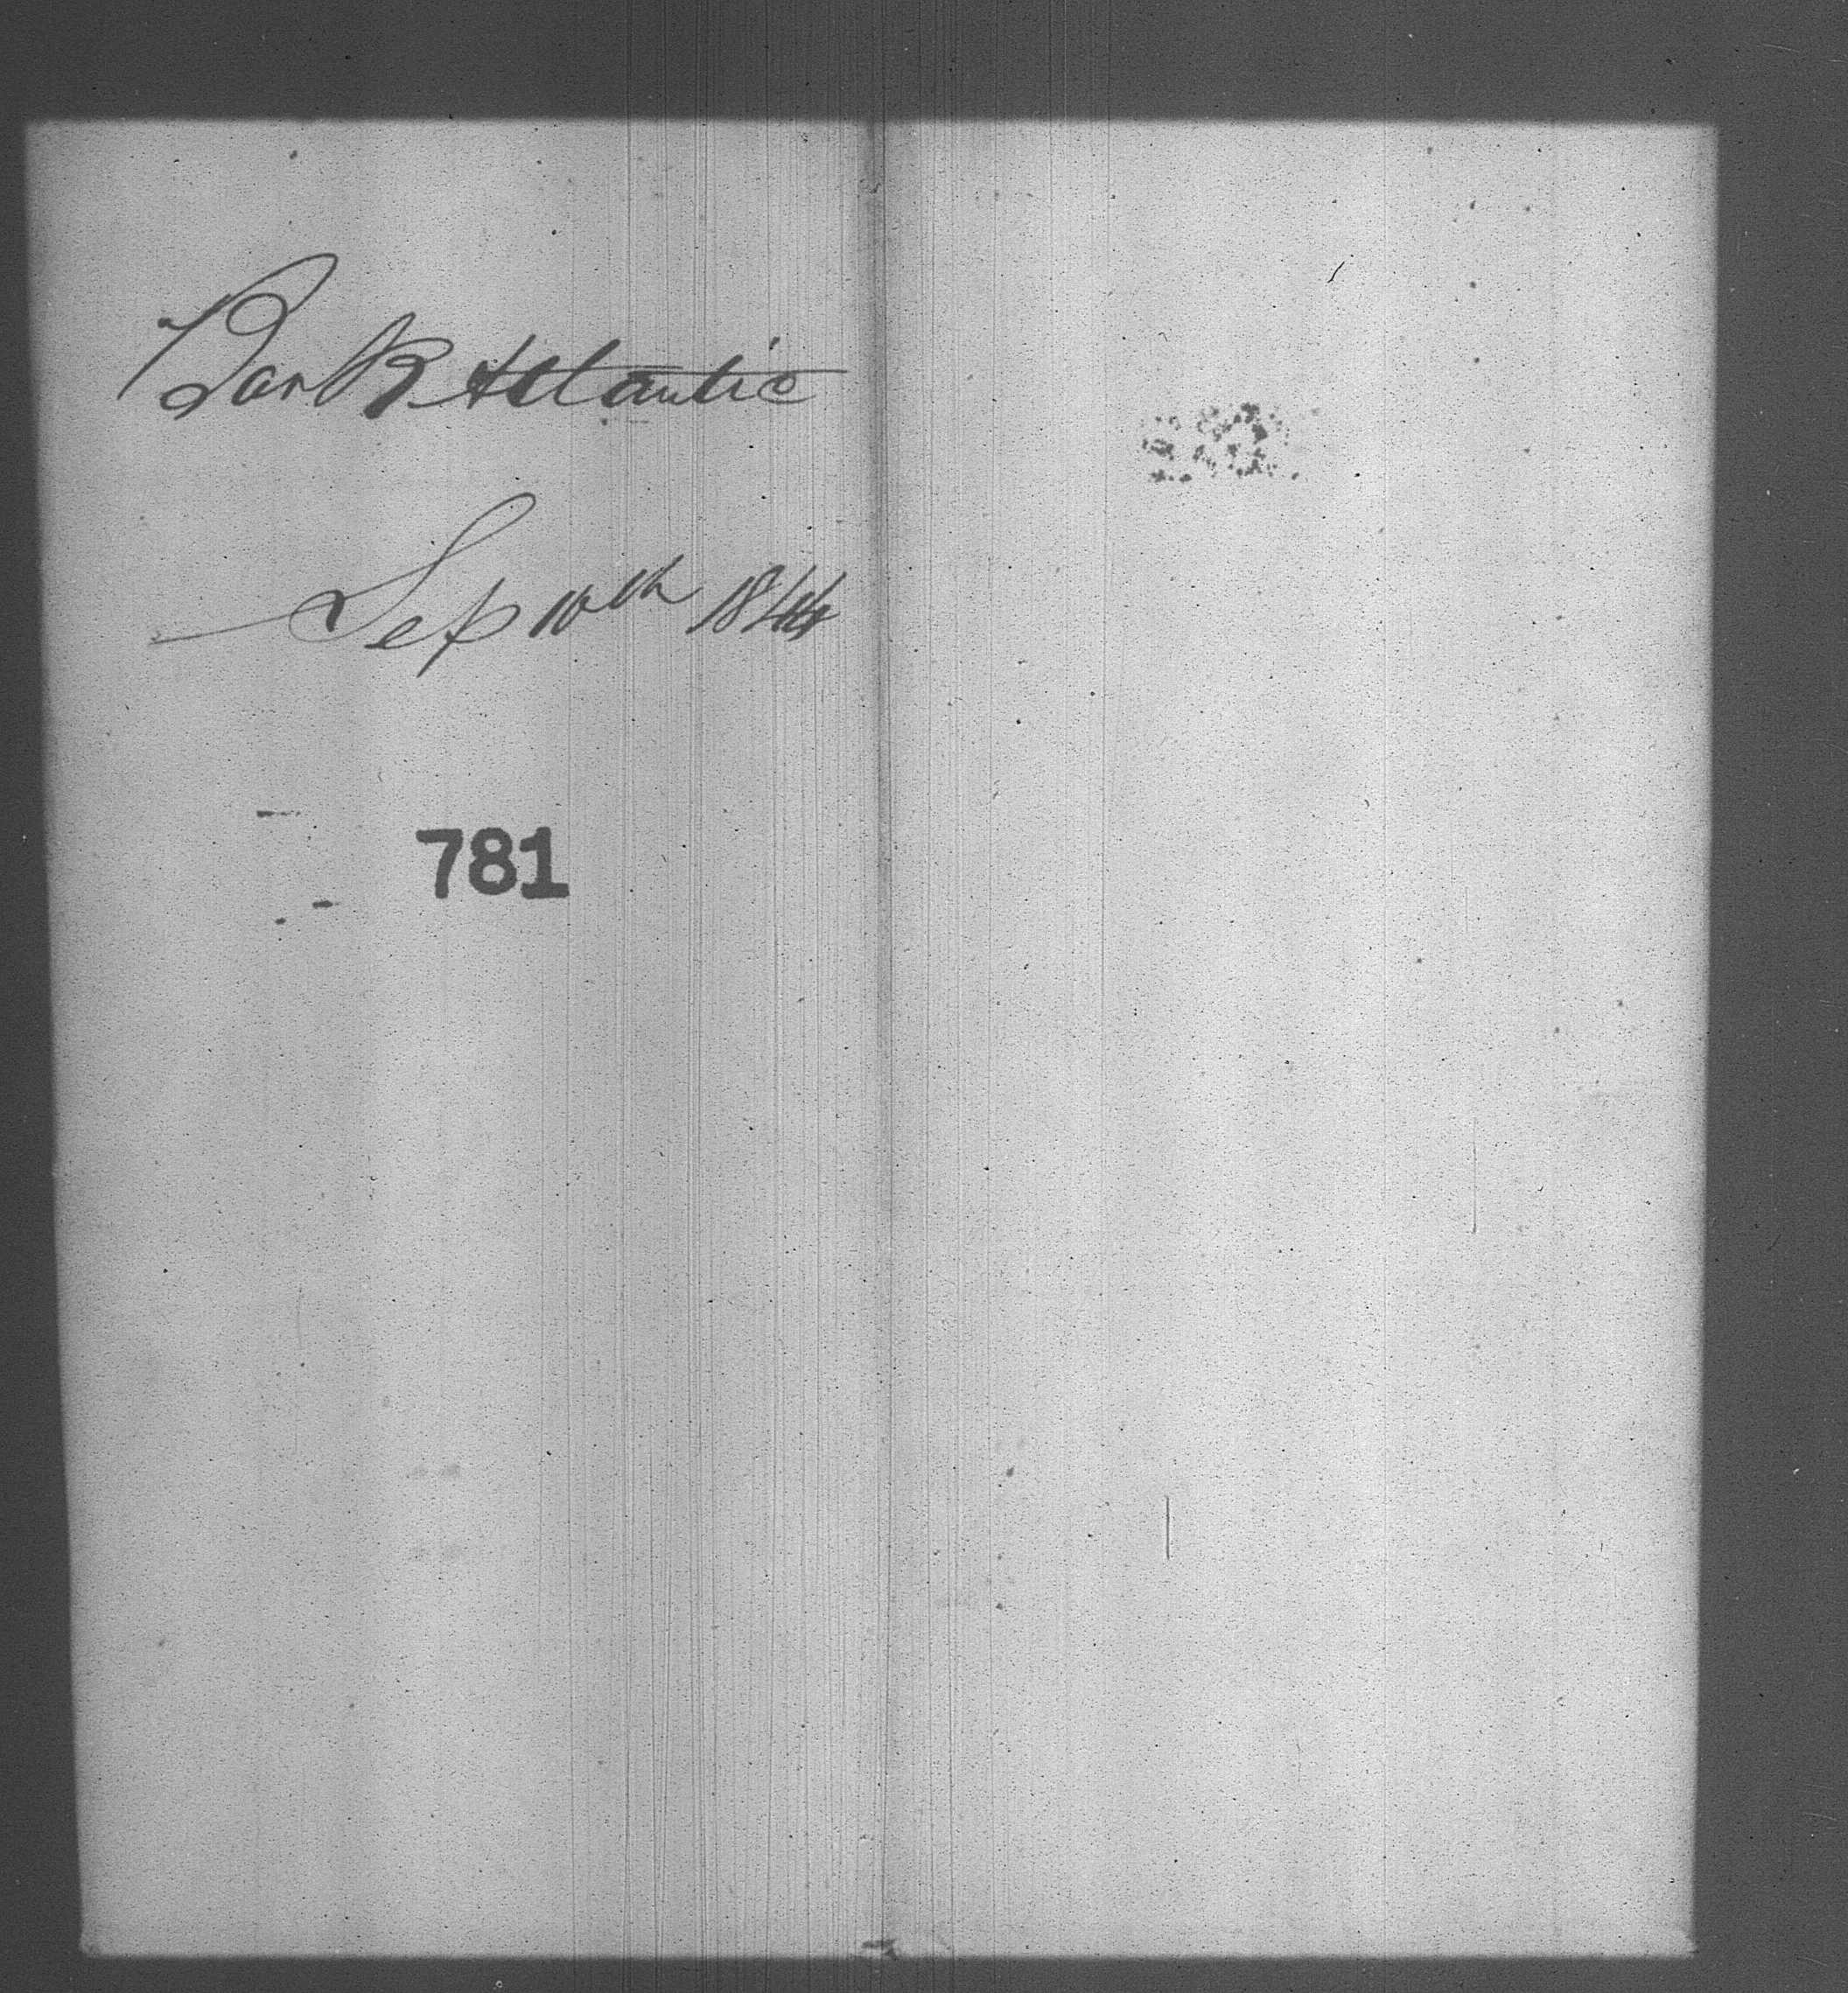 Bark Atlantic
Sep 10th 1844
781